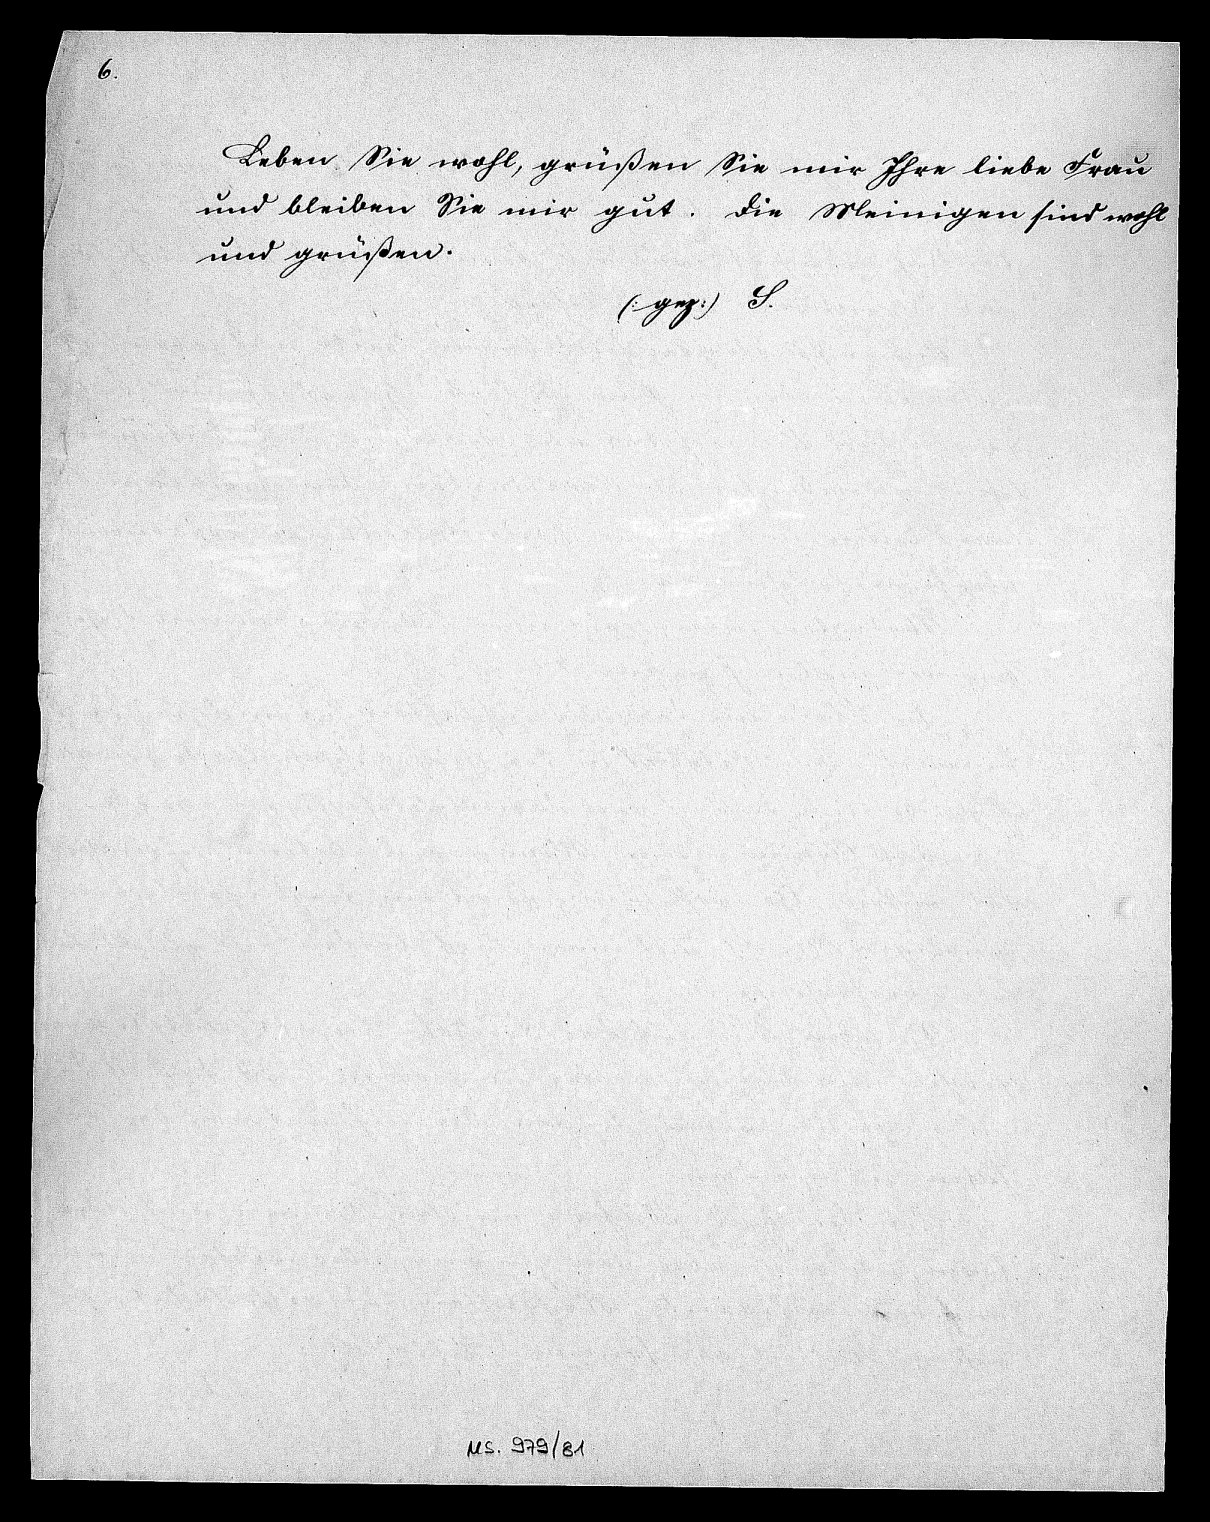 6.
Leben Sie wohl, grüßen Sie mir Ihre liebe Frau
und bleiben Sie mir gut. Die Meinigen sind wohl
und grüßen.
(: gez:) S.
MS. 979/81